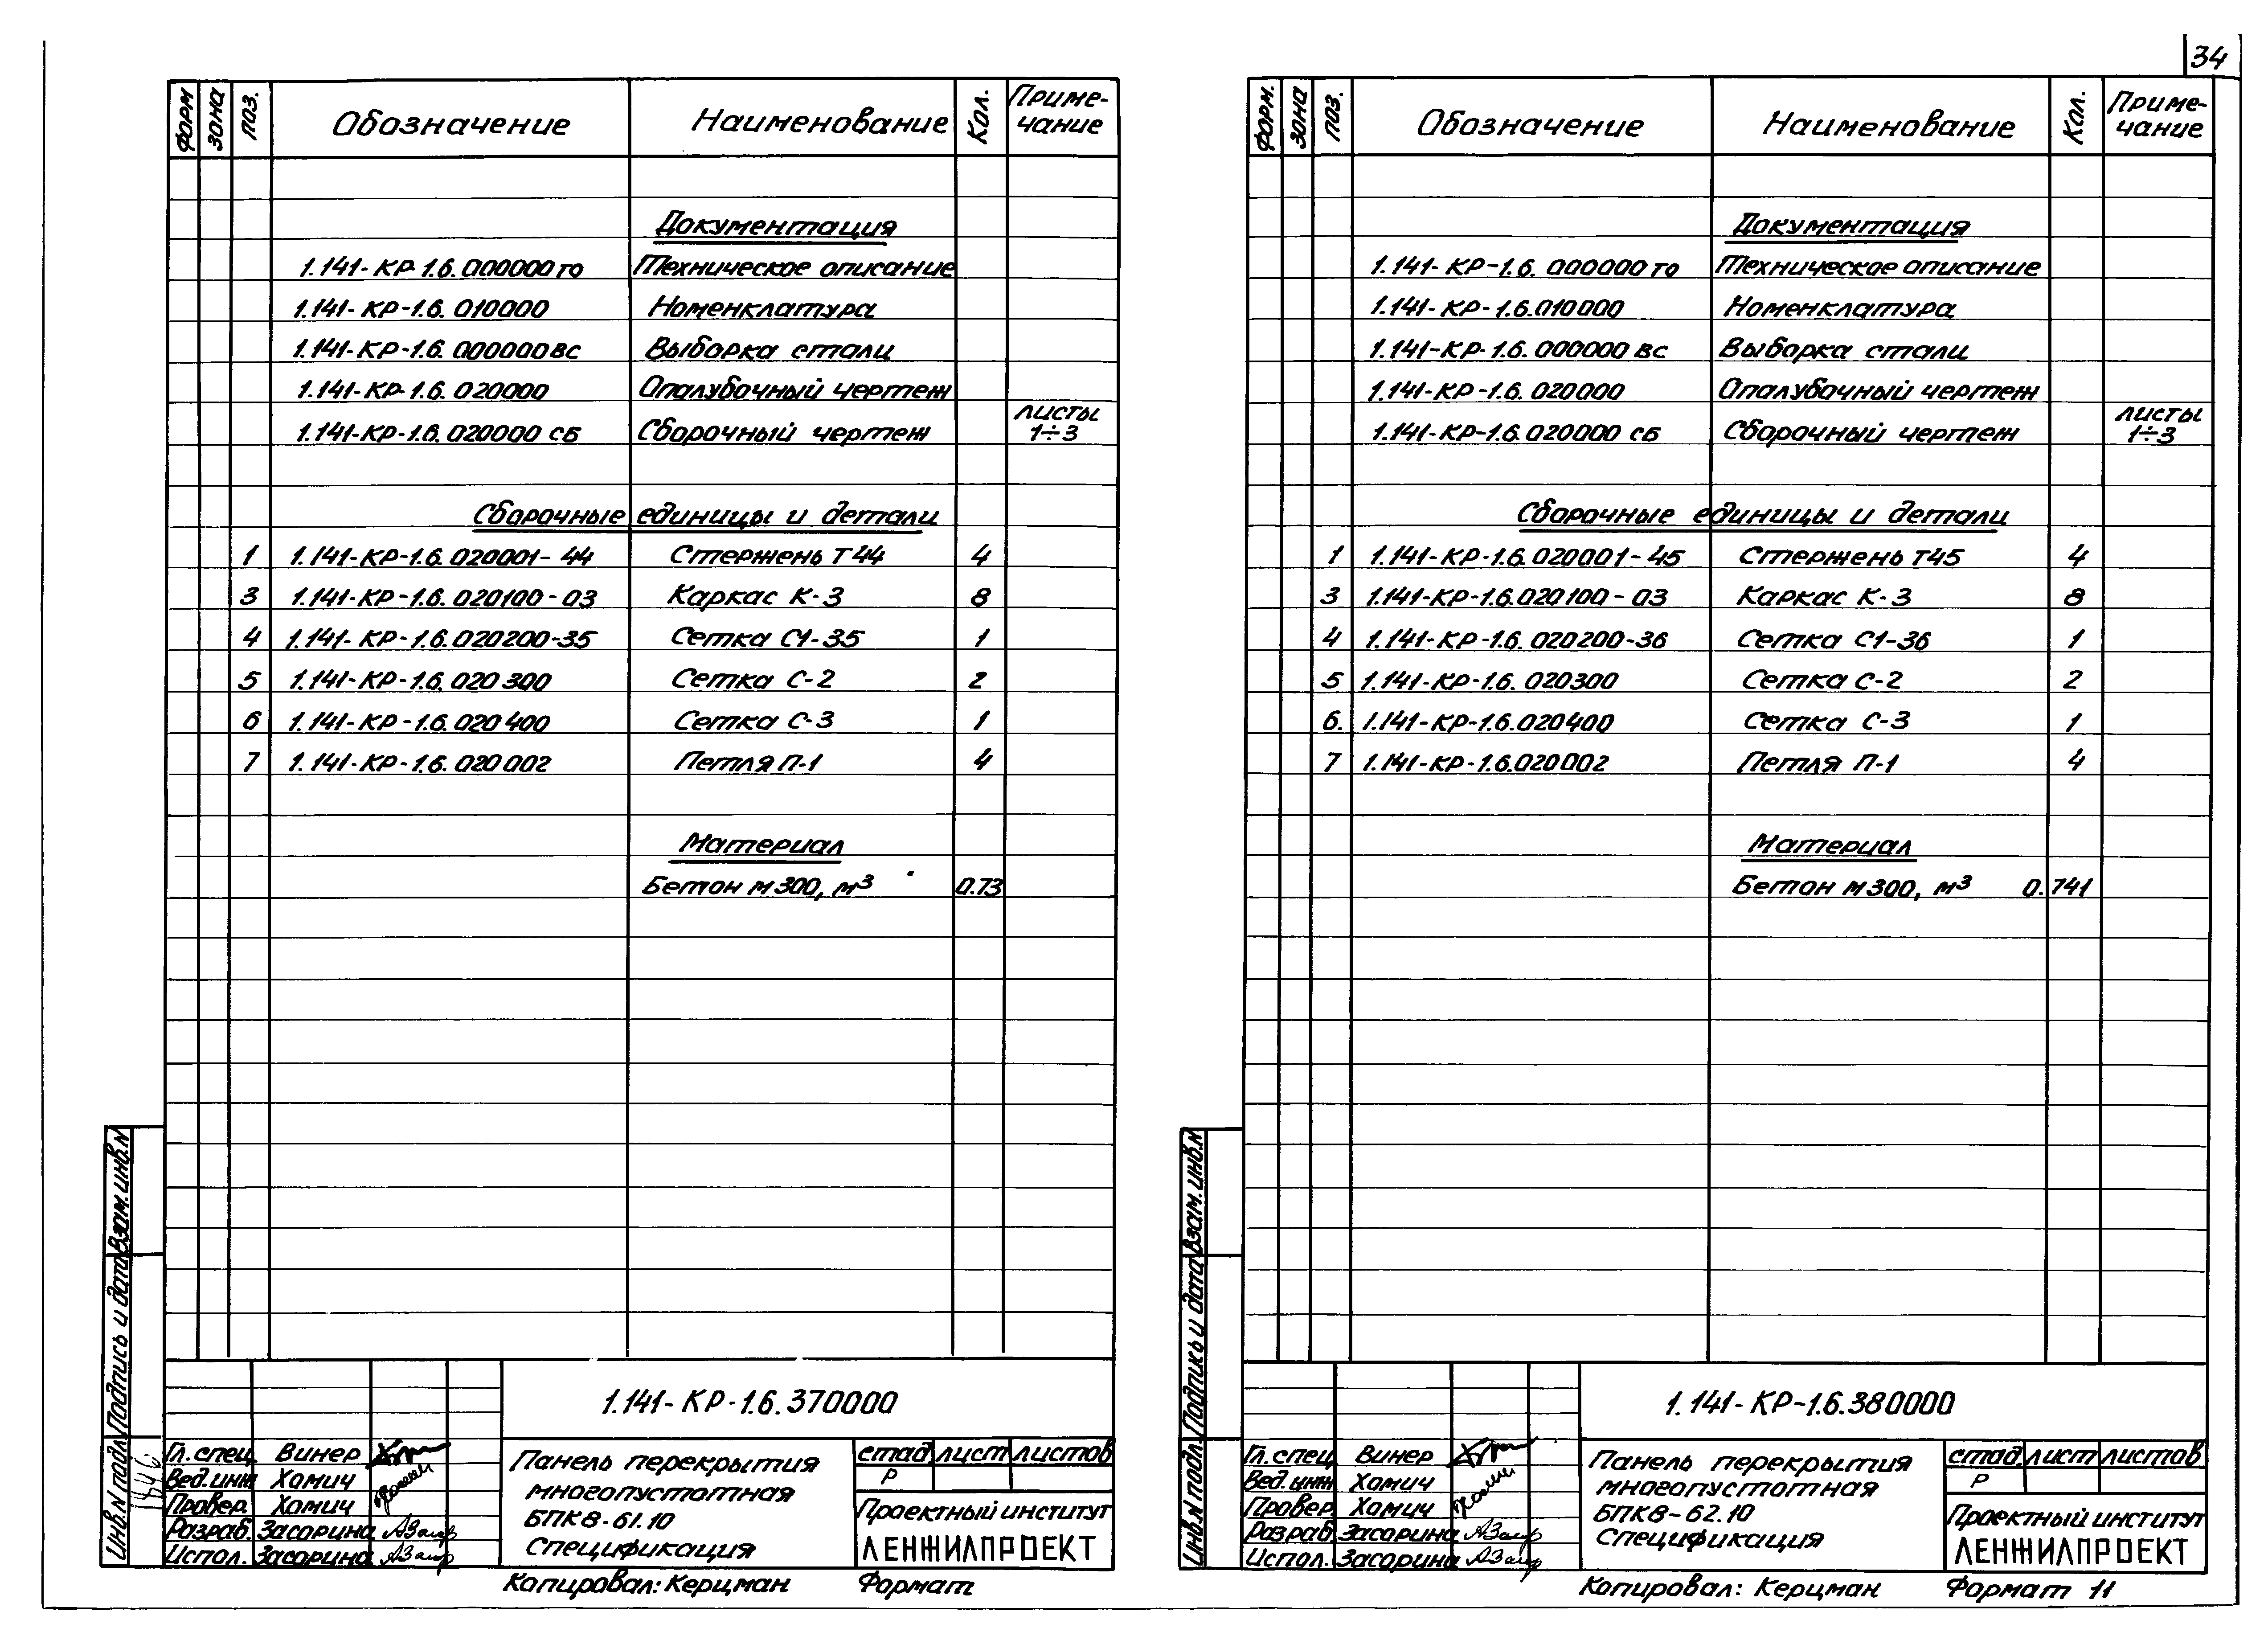 34
Форм зона поз. Обозначение Наименование Кол. Приме-
чание
Документация
1.141-КР-1.6.000000ТО Техническое описание
1.141-КР-1.6.010000 Номенклатура
1.141-КР-1.6.000000ВС Выборка стали
1.141-КР-1.6.020000 Опалубочный чертеж
1.141-КР-1.6.020000 СБ Сборочный чертеж листы
1÷3
Сборочные единицы и детали
1 1.141-КР-1.6.020001-44 Стержень Т44 4
3 1.141-КР-1.6.020100-03 Каркас К-3 8
4 1.141-КР-1.6.020200-35 Сетка С1-35 1
5 1.141-КР-1.6.020300 Сетка С-2 2
6 1.141-КР-1.6.020400 Сетка С-3 1
7 1.141-КР-1.6.020002 Петля П-1 4
Материал
Бетон м300, м³ 0.73
Взам.инв.N
Подпись и дата
Инв.N подл.
1.141-КР-1.6.370000
Гл.спец. Винер
Вед.инж Хомич
Провер. Хомич
Разраб. Засорина
Испол. Засорина
Панель перекрытия
многопустотная
БПК8-61.10
Спецификация
стад. лист листов
Р
Проектный институт
ЛЕНЖИЛПРОЕКТ
Копировал: Керцман Формат
Форм. зона поз. Обозначение Наименование Кол. Приме-
чание
Документация
1.141-КР-1.6.000000ТО Техническое описание
1.141-КР-1.6.010000 Номенклатура
1.141-КР-1.6.000000 ВС Выборка стали
1.141-КР-1.6.020000 Опалубочный чертеж
1.141-КР-1.6.020000 СБ Сборочный чертеж листы
1÷3
Сборочные единицы и детали
1 1.141-КР-1.6.020001-45 Стержень Т45 4
3 1.141-КР-1.6.020100-03 Каркас К-3 8
4 1.141-КР-1.6.020200-36 Сетка С1-36 1
5 1.141-КР-1.6.020300 Сетка С-2 2
6. 1.141-КР-1.6.020400 Сетка С-3 1
7 1.141-КР-1.6.020002 Петля П-1 4
Материал
Бетон м300, м³ 0.741
Взам.инв.N
Подпись и дата
Инв.N подл.
1.141-КР-1.6.380000
Гл.спец. Винер
Вед.инж Хомич
Провер. Хомич
Разраб. Засорина
Испол. Засорина
Панель перекрытия
многопустотная
БПК8-62.10
Спецификация
стад. лист листов
Р
Проектный институт
ЛЕНЖИЛПРОЕКТ
Копировал: Керцман Формат 11